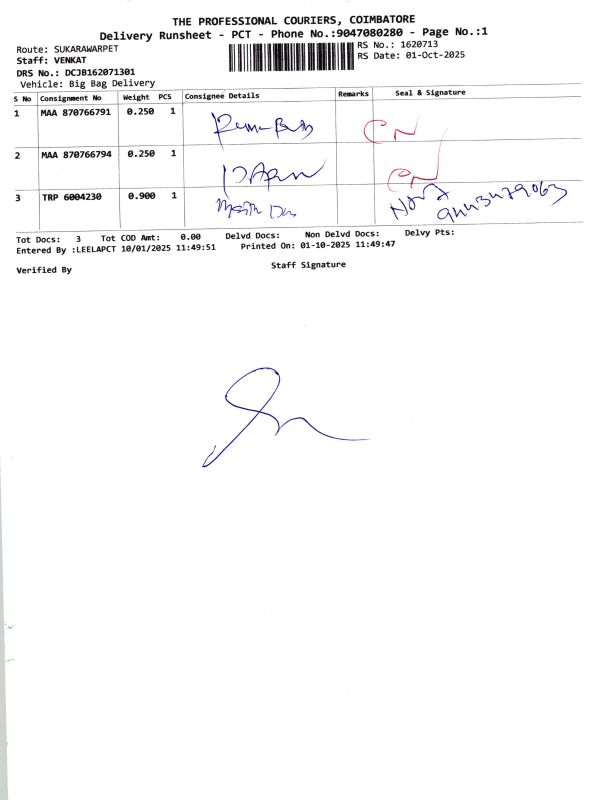 THE PROFESSIONAL COURIERS, COIMBATORE
Delivery Runsheet - PCT - Phone No.:9047080280 - Page No.:1
Route: SUKARAWARPET
RS No.: 1620713
Staff: VENKAT
RS Date: 01-Oct-2025
DRS No.: DCJB162071301
Vehicle: Big Bag Delivery
S No Consignment No Weight PCS Consignee Details Remarks Seal & Signature
1 MAA 870766791 0.250 1
2 MAA 870766794 0.250 1
3 TRP 6004230 0.900 1
Tot Docs: 3 Tot COD Amt: 0.00 Delvd Docs: Non Delvd Docs: Delvy Pts:
Entered By :LEELAPCT 10/01/2025 11:49:51 Printed On: 01-10-2025 11:49:47
Verified By Staff Signature